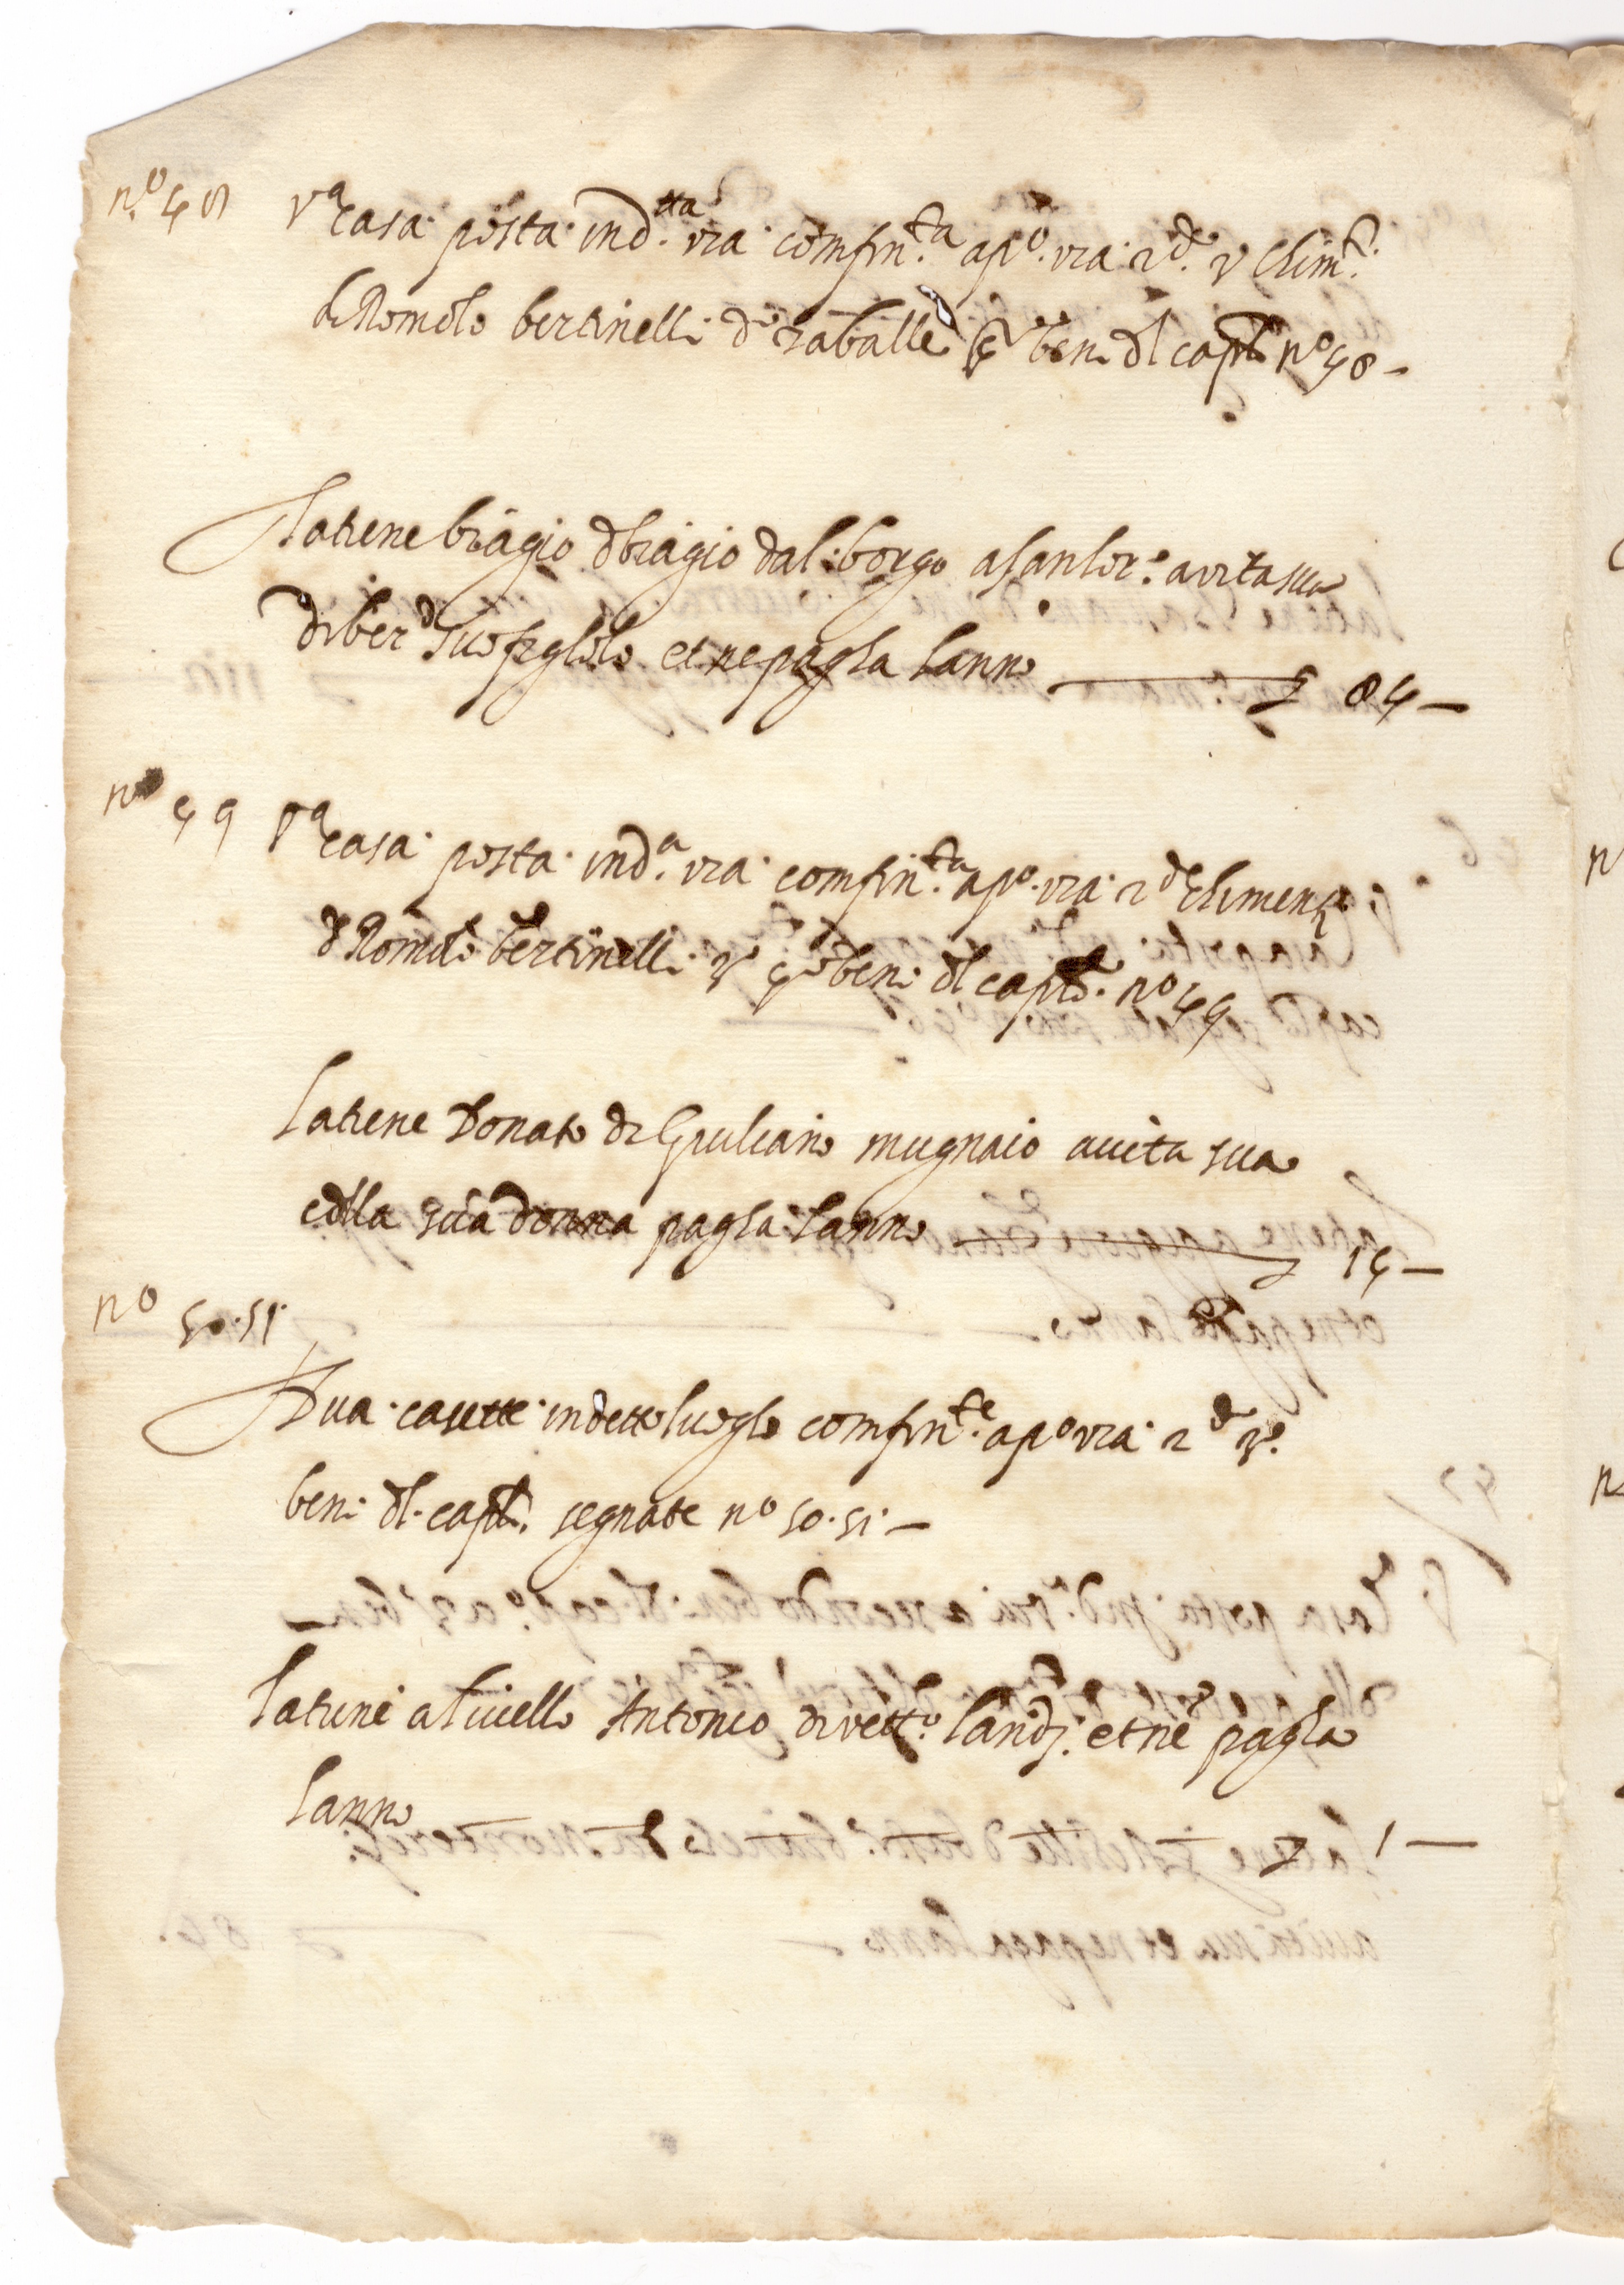 n.º 48
Vª casa posta in d.tta via confin.ta a pº via 2º
di Romolo bertinelli beni dl capl.º nº 48 –
La tiene biagio d biagio dal borgo a san lor.º a vita sua
di ber.dº suo figliolo et ne pagha lanno 84 –
nº 49
Vª casa posta in d.ª via confin.ta a pº via 2º
d Romolo bertinelli 3º 4º beni dl capl.º nº 49
La tiene Donato di Giuliano mugnaio a vita sua
e dlla sua donna pagha lanno 14 –
nº 50·51·
Dua casette in detto luogho confin.te a pº via 2º 3º
beni dl capl.º segnate nº 50·51· –
La tiene a livello Antonio di vett.º landi et ne pagha
lanno 1 –